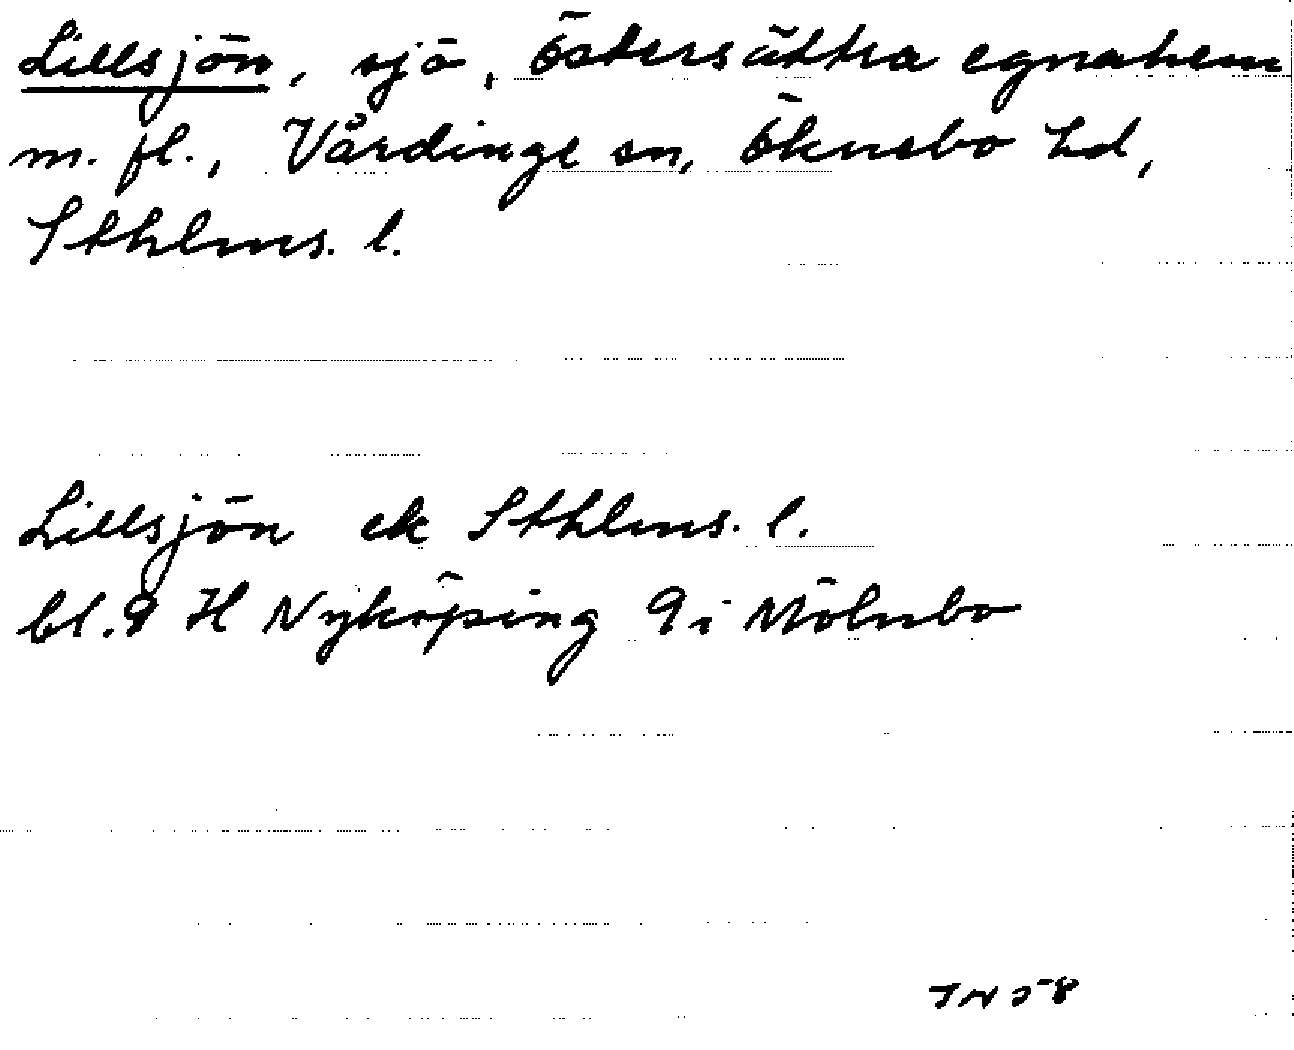 Lillsjön, sjö, Östersättra egnahem
m. fl., Vårdinge sn, Öknebo hd,
Sthlms. l.
Lillsjön ek Sthlms. l.
bl. 9 H Nyköping 9i Mölnbo